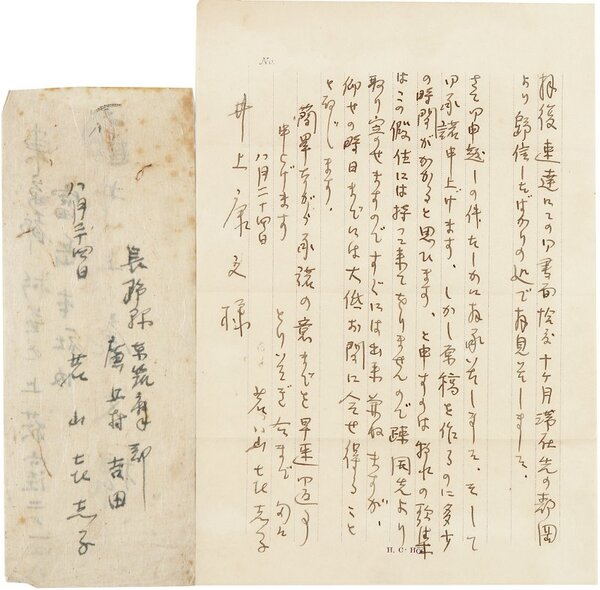 No.
拝復 速達にての御書面恰度十ヶ月滞在先の静岡
より歸信したばかりの処で拝見いたしました。
さて御申越しの件たしかに拝承いたしました、そして
御承諾申上げます。しかし原稿を作るのに多少
の時間がかかると思ひます、と申すのは私の歌集
はこの假住には持って来てをりませんので疎開先より
取り寄せますのですぐには出来兼ねますが、
仰せの時日までには大低お間に合せ得ること
と存じます。
簡単ながら承諾の意までを早速御返事
申上げます
とりいそぎ
八月二十四日
若山喜志子
井上康文様
H. C.
長野縣東筑摩郡
廣丘村 吉田
若山 喜志子
八月廿四日